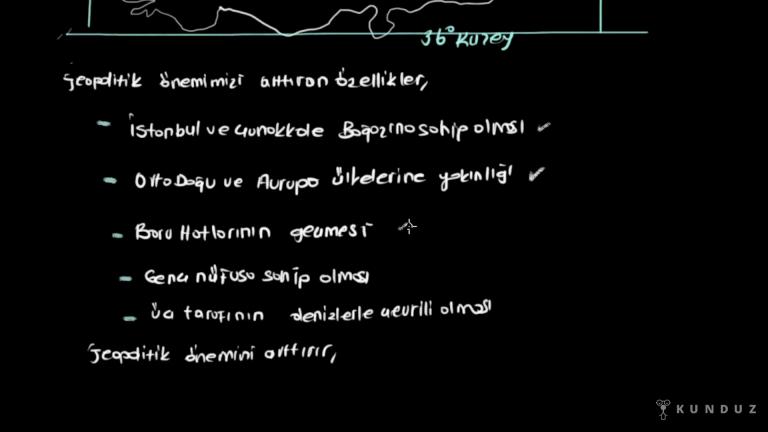 36° Kuzey
Jeopolitik önemimizi arttıran özellikler,
- İstanbul ve Çanakkale Boğazına sahip olması ✓
- Orta Doğu ve Avrupa ülkelerine yakınlığı ✓
- Boru Hatlarının geçmesi
- Genç nüfusa sahip olması
- Üç tarafının denizlerle çevrili olması
Jeopolitik önemini arttırır,
KUNDUZ